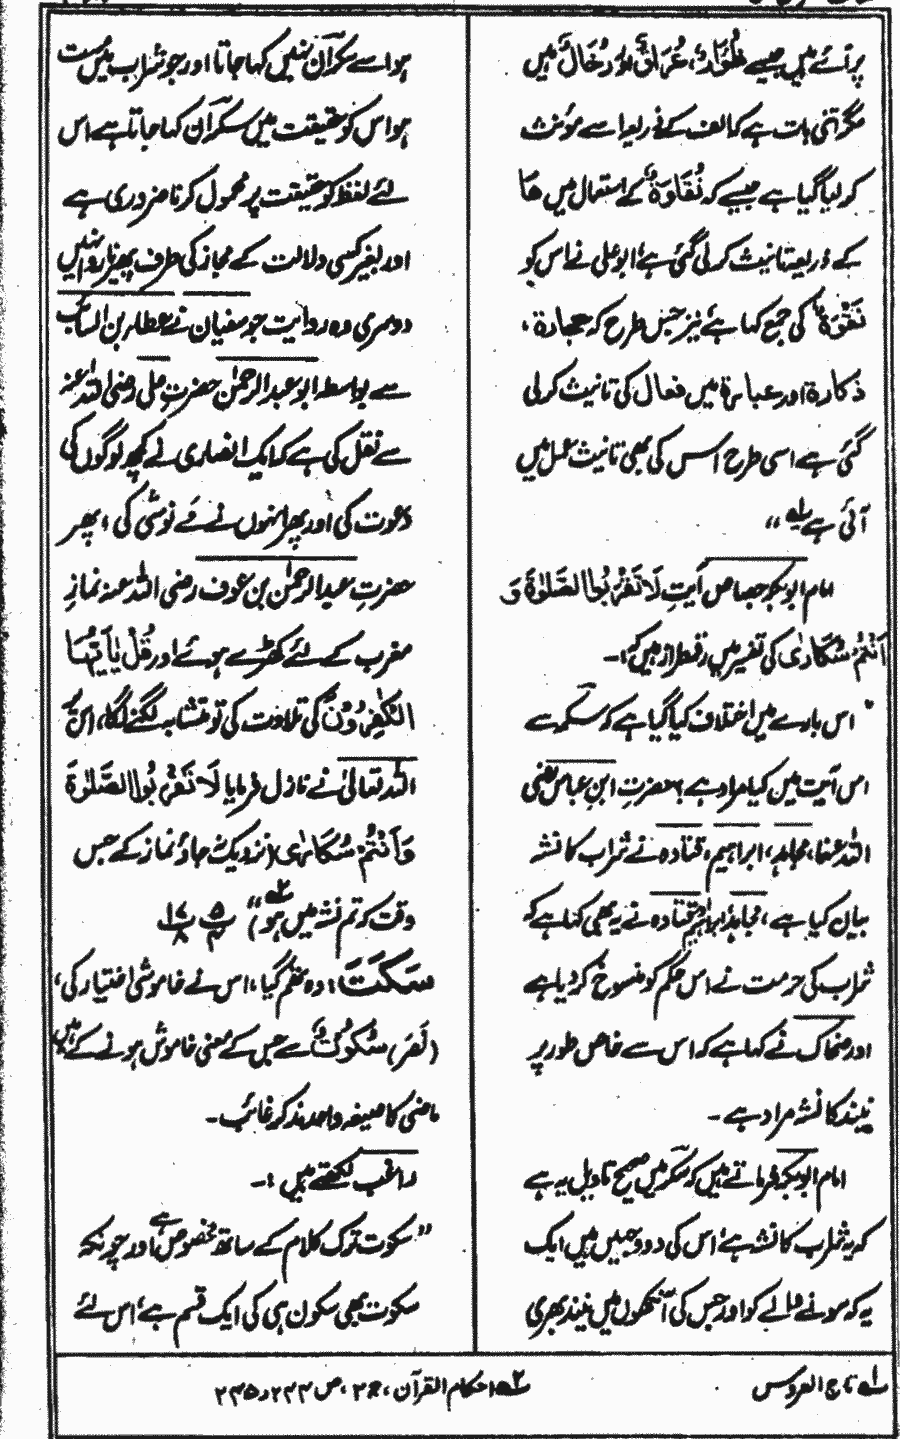 پر آئے ہیں جیسے ظُوَارٌ، عُرَاقٌ اور رُخَالٌ میں
مگر اتنی بات ہے کہ الف کے ذریعہ اسے مؤنث
کر لیا گیا ہے جیسے کہ نُقَاوَةٌ کے استعمال میں ھا
کے ذریعہ تانیث کر لی گئی ہے، ابو علی نے اس کو
نَقْوَةٌ کی جمع کہا ہے نیز جس طرح کہ حجارۃ،
ذکارۃ اور عبارۃ میں فعال کی تانیث کر لی
گئی ہے اسی طرح اس کی بھی تانیث عمل میں
آئی ہے لہ"
امام ابوبکر جصاص آیتِ لَا تَقْرَبُوا الصَّلٰوةَ وَ
اَنْتُمْ سُكَارٰى کی تفسیر میں رقمطراز ہیں کہ:۔
" اس بارے میں اختلاف کیا گیا ہے کہ سکر سے
اس آیت میں کیا مراد ہے؟ حضرتِ ابنِ عباس رضی
اللہ عنھا، مجاہد، ابراہیم، قتادہ نے شراب کا نشہ
بیان کیا ہے، مجاہد، ابراہیم قتادہ نے یہ بھی کہا ہے کہ
شراب کی حرمت نے اس حکم کو منسوخ کر دیا ہے
اور ضحاک نے کہا ہے کہ اس سے خاص طور پر
نیند کا نشہ مراد ہے۔
امام ابوبکر فرماتے ہیں کہ سکر میں صحیح تاویل یہ ہے
کہ یہ شراب کا نشہ ہے، اس کی دو وجہیں ہیں ایک
یہ کہ سونے والے کو اور جس کی آنکھوں میں نیند بھری
ہو اسے سکران نہیں کہا جاتا اور جو شراب میں مست
ہو اس کو حقیقت میں سکران کہا جاتا ہے اس
لئے لفظ کو حقیقت پر محمول کرنا ضروری ہے
اور بغیر کسی دلالت کے مجاز کی طرف پھیرنا روا نہیں
دوسری وہ روایت جو سفیان نے عطار بن السائب
سے بواسطہ ابو عبد الرحمٰن حضرتِ علی رضی اللہ عنہ
سے نقل کی ہے کہ ایک انصاری نے کچھ لوگوں کی
دعوت کی اور پھر انہوں نے مے نوشی کی، پھر
حضرتِ عبد الرحمٰن بن عوف رضی اللہ عنہ نمازِ
مغرب کے لئے کھڑے ہوئے اور قُلْ يٰاَيُّهَا
الْكٰفِرُوْنَ کی تلاوت کی تو متشابہ لگنے لگا، اس پر
اللہ تعالیٰ نے نازل فرمایا لَا تَقْرَبُوا الصَّلٰوةَ
وَ اَنْتُمْ سُكَارٰى (نزدیک نہ جاؤ نماز کے جس
وقت کہ تم نشہ میں ہو) ٢ه"
سَكَتَ: وہ تھم گیا، اس نے خاموشی اختیار کی،
(نَصَرَ) سُكُوتٌ سے جس کے معنی خاموش ہونے کے ہیں
ماضی کا صیغہ واحد مذکر غائب۔
راغب لکھتے ہیں:۔
" سکوت ترک کلام کے ساتھ مخصوص ہے اور چونکہ
سکوت بھی سکون ہی کی ایک قسم ہے، اس لئے
لہ تاج العروس ٢ه احکام القرآن، ج ٣، ص ٢٤٤ و ٢٤٥